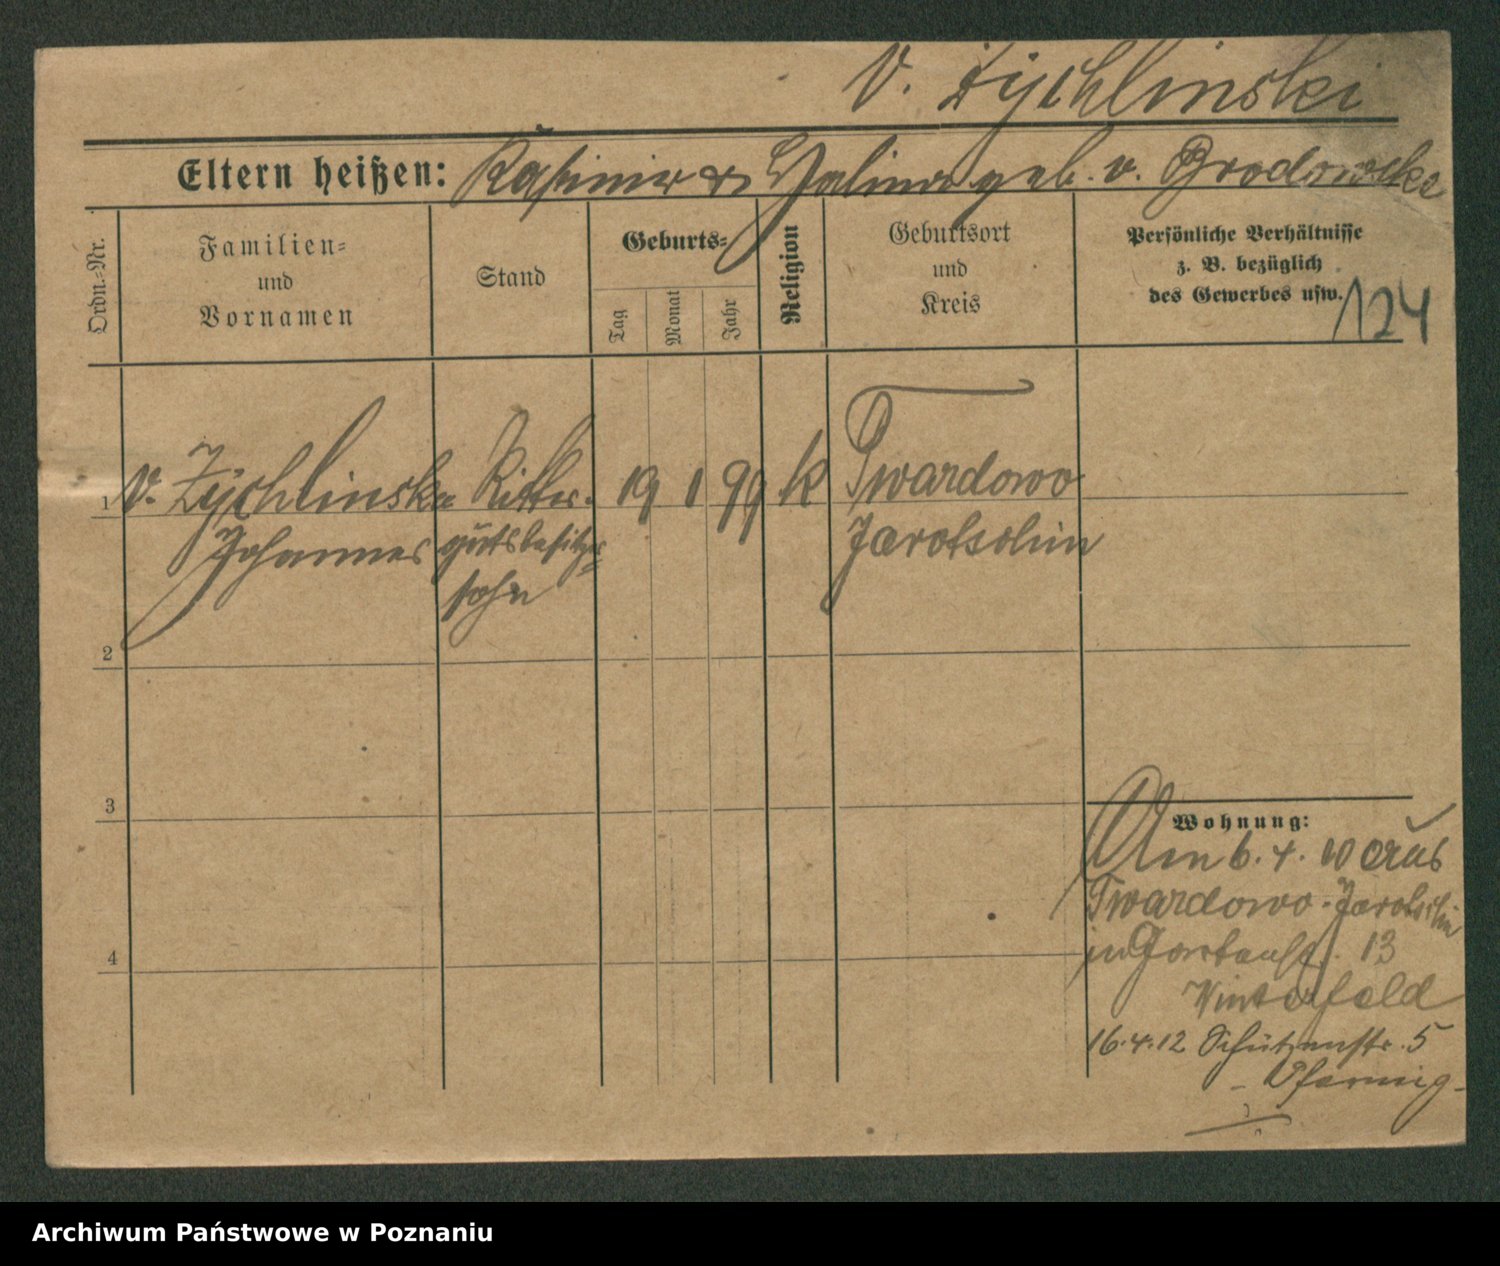 v. Zychlinski
Eltern heißen: Kasimir & Halina geb. v. Brodowska
Ordn.-Nr.
Familien-
und
Vornamen
Stand
Geburts-
Tag
Monat
Jahr
Religion
Geburtsort
und
Kreis
Persönliche Verhältnisse
z. B. bezüglich
des Gewerbes usw.
124
1 v. Zychlinski Ritter- 19 1 99 k Twardowo
Johannes gutsbesitzer= Jarotschin
sohn
2
3
4
Wohnung:
Am 6. 4. 10 aus
Twardowo-Jarotschin
in Gartenstr. 13
Winterfeld
16.4.12 Schützenstr. 5
Archiwum Państwowe w Poznaniu